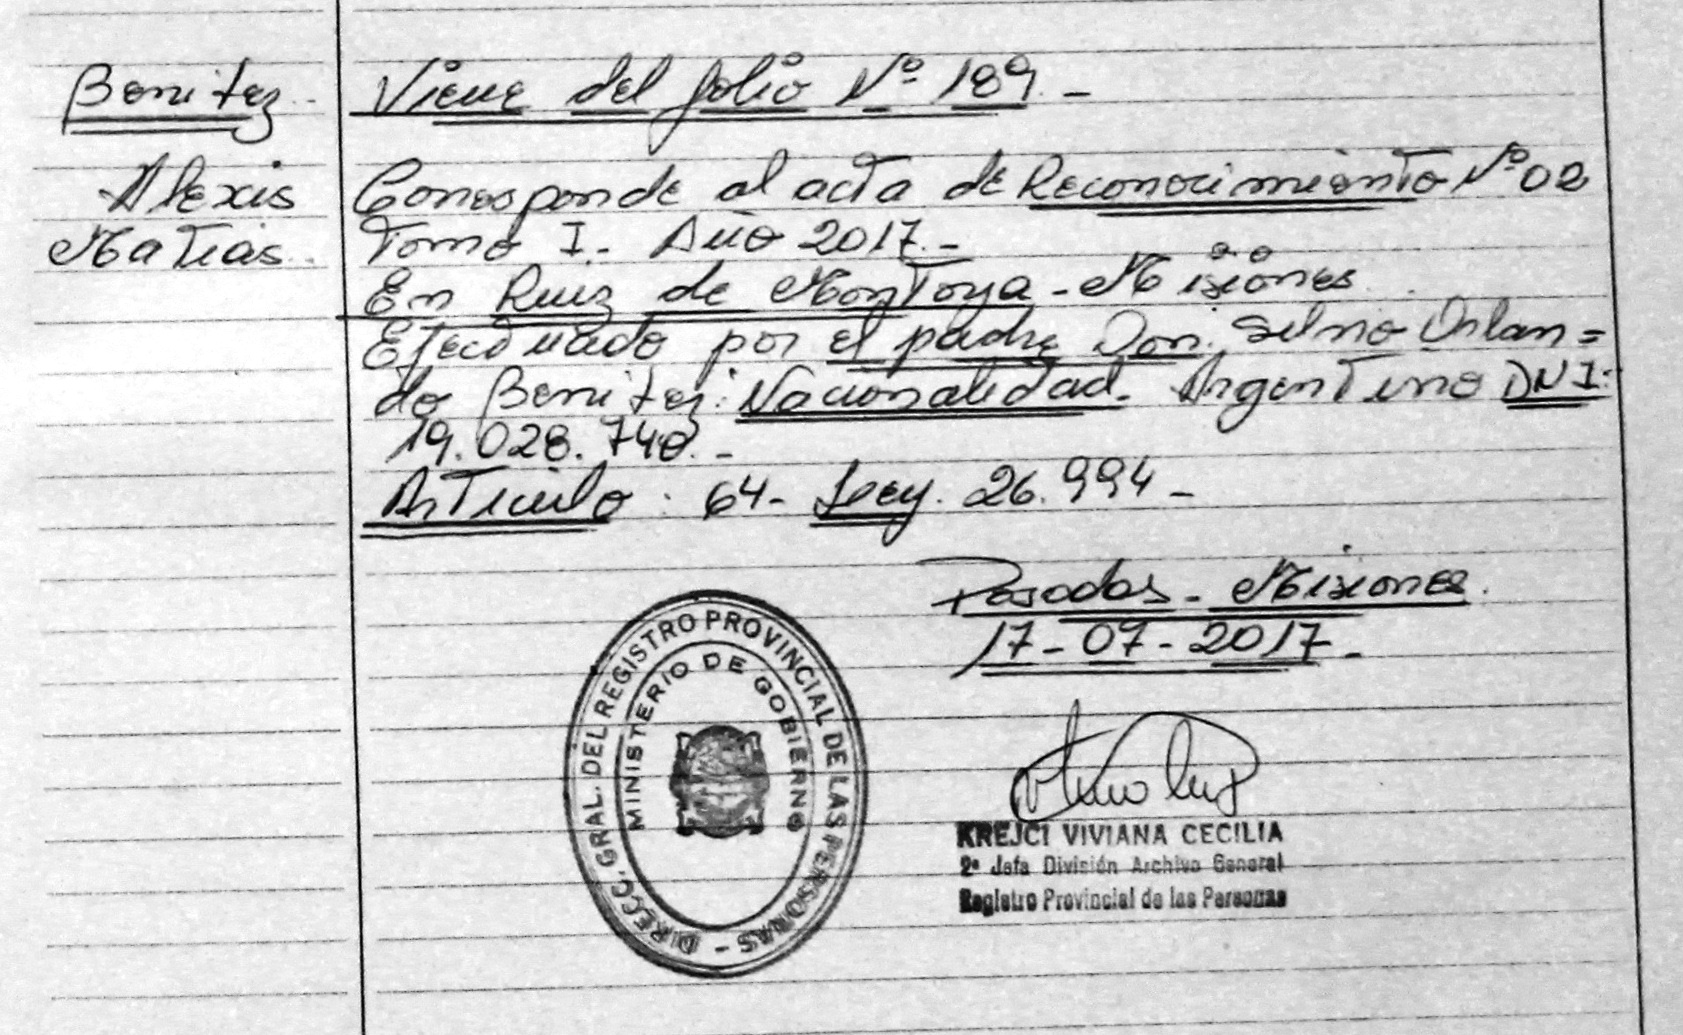 Benitez.
Alexis
Matias.
Viene del folio Nº 189.-
Corresponde al acta de Reconocimiento Nº 02
Tomo I. Año 2017.-
En Ruiz de Montoya - Misiones.
Efectuado por el padre Don. Silvio Orlan=
do Benitez: Nacionalidad. Argentino DNI:
19.028.740.-
Articulo: 64- Ley. 26.994-
Posadas - Misiones.
17-07-2017.-
DIRECC. GRAL. DEL REGISTRO PROVINCIAL DE LAS PERSONAS -
MINISTERIO DE GOBIERNO
KREJCI VIVIANA CECILIA
2ª Jefa División Archivo General
Registro Provincial de las Personas